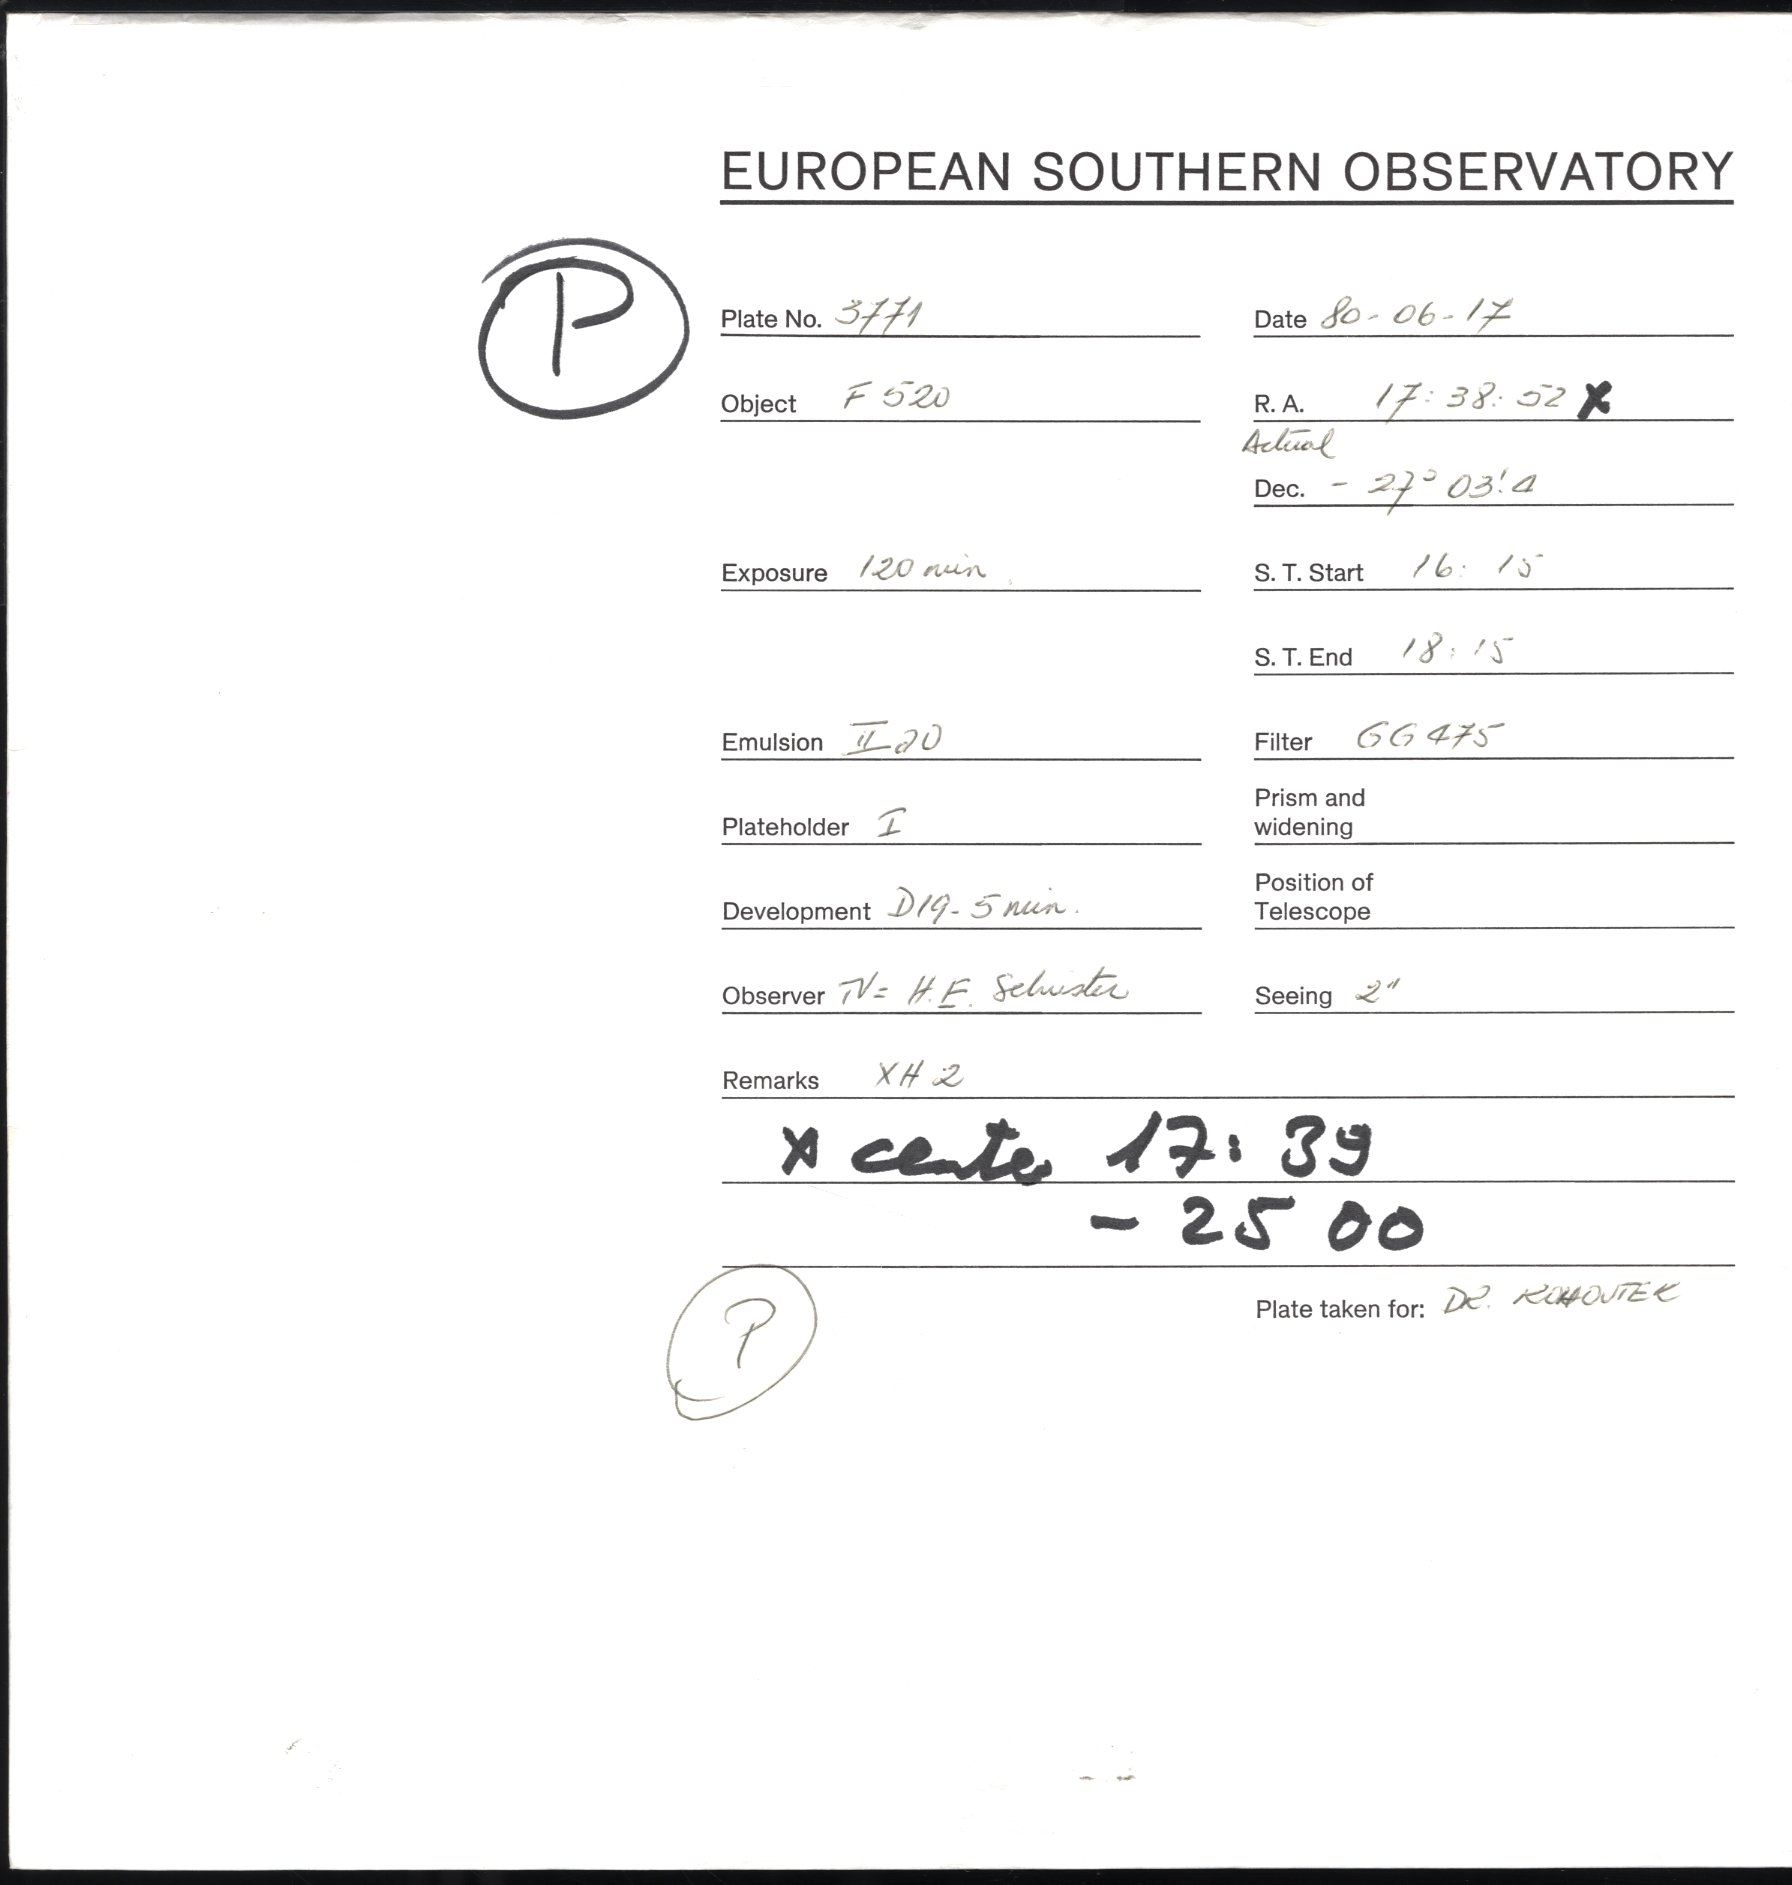 EUROPEAN SOUTHERN OBSERVATORY
P
Plate No. 3771 Date 80-06-17
Object F 520 R. A. 17:38:52 x
Actual
Dec. - 27° 03!4
Exposure 120 min S. T. Start 16:15
S. T. End 18:15
Emulsion IIaO Filter GG475
Plateholder I Prism and widening
Development D19-5 min. Position of Telescope
Observer H.E. Schuster Seeing 2"
Remarks XH2
x center 17:39
- 25 00
P
Plate taken for: DR. KOHOUTEK